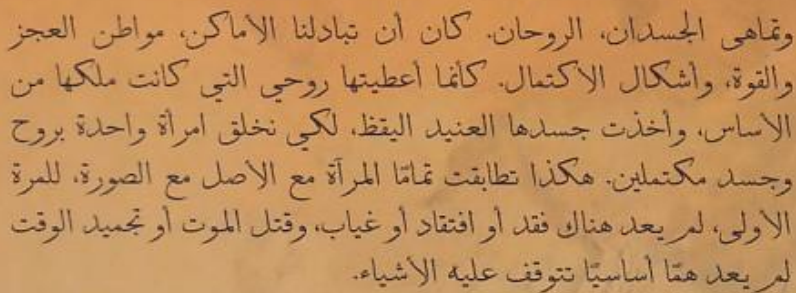 وتماهى الجسدان، الروحان. كان أن تبادلنا الأماكن، مواطن العجز
والقوة، وأشكال الاكتمال. كأنما أعطيتها روحي التي كانت ملكها من
الأساس، وأخذت جسدها العنيد اليقظ، لكي نخلق امرأة واحدة بروح
وجسد مكتملين. هكذا تطابقت تمامًا المرآة مع الأصل مع الصورة، للمرة
الأولى، لم يعد هناك فقد أو افتقاد أو غياب، وقتل الموت أو تجميد الوقت
لم يعد همًّا أساسيًّا تتوقف عليه الأشياء.